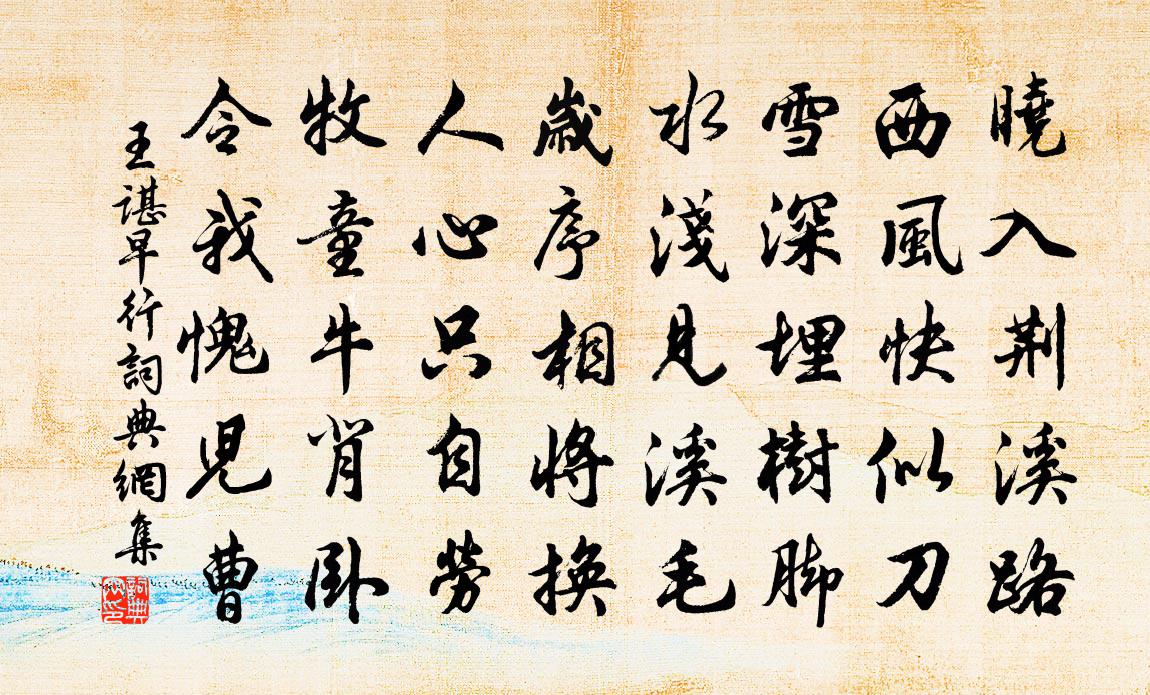 曉入荆溪路
西風快似刀
雪深埋樹脚
水淺見溪毛
歲序相將換
人心只自勞
牧童牛背卧
令我愧兒曹
王諶早行詞典網集